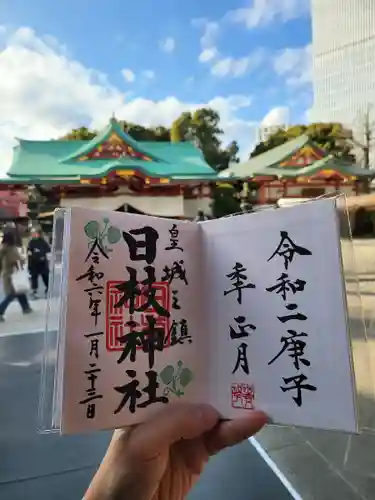 令和二庚子
季正月
皇城之鎮
日枝神社
令和二年一月二十三日